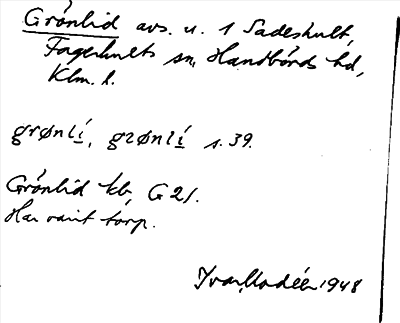 Grönlid avs. u. 1 Sadeshult,
Fagerhults sn, Handbörds hd,
Klm. l.
grønlí, grønlí s. 39.
Grönlid kb, G 21.
Har varit torp.
Ivar Modéer 1948